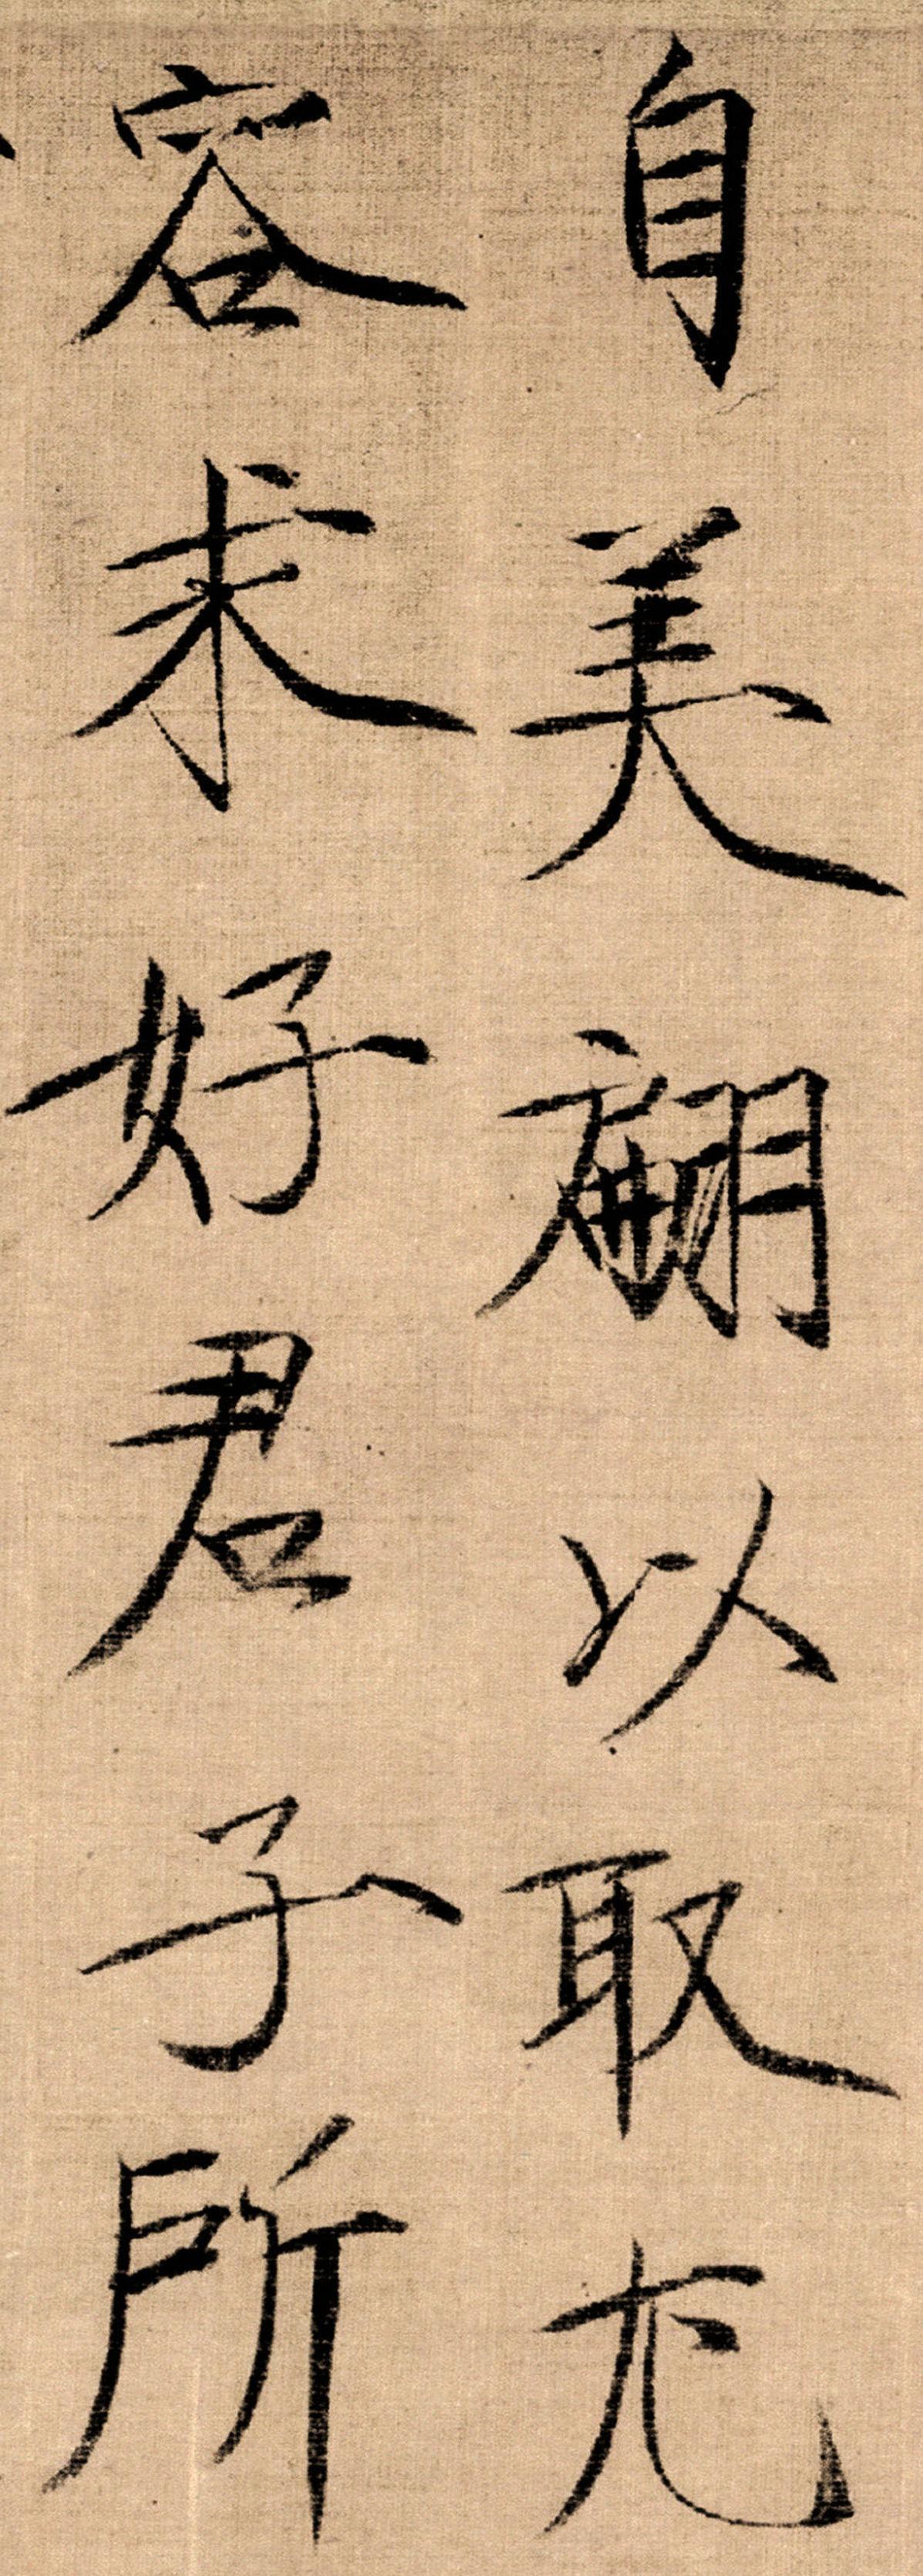 自美翩以取尤
容求好君子所